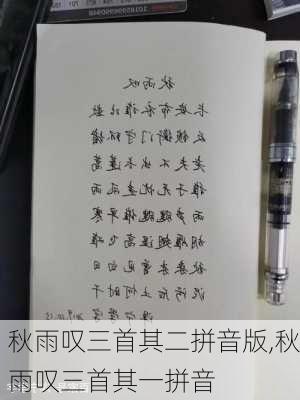 秋雨叹
长安布衣谁比数
反锁衡门守环堵
老夫不出长蓬蒿
稚子无忧走风雨
雨声飕飕催早寒
胡雁翅湿高飞难
秋来未曾见白日
泥污后土何时干
秋雨叹三首其二拼音版,秋
雨叹三首其一拼音